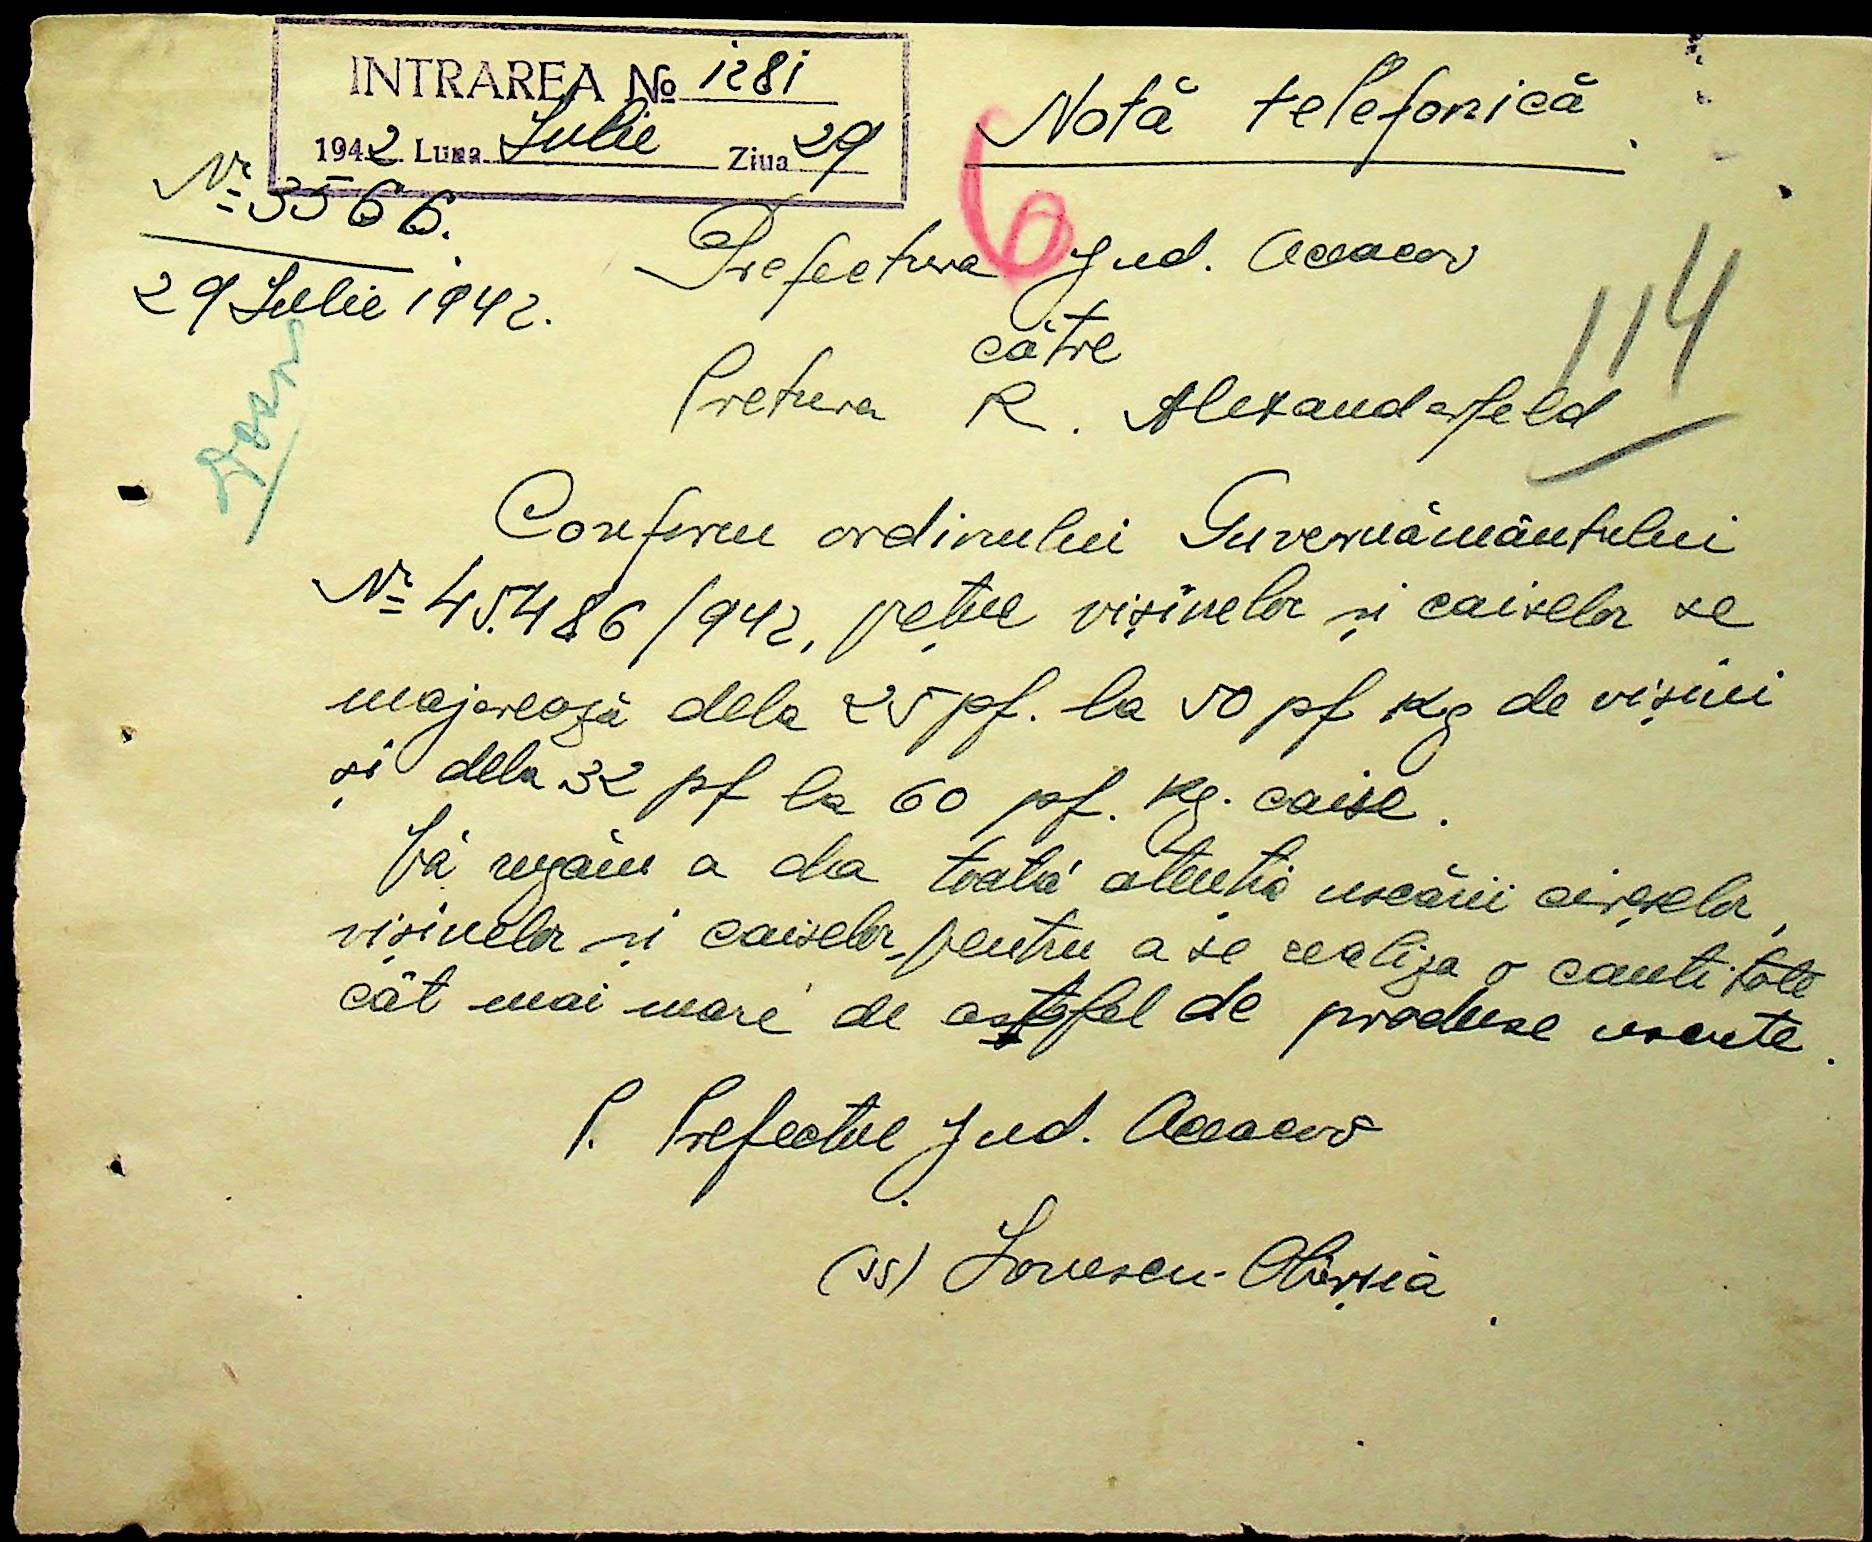 INTRAREA No 1281
1942 Luna Iulie Ziua 29
Notă telefonică
6
№ 3566.
29 Iulie 1942.
Prefectura Jud. Oceacov
114
către
Pretura R. Alexanderfeld
Dosar
Conform ordinului Guvernământului
№ 45.486/942, prețul vișinelor și caiselor se
majorează dela 25 pf. la 50 pf kg de vișini
și dela 32 pf la 60 pf. kg. caise.
Vă rugăm a da toată atenția uscării cireșelor,
vișinelor și caiselor, pentru a se realiza o cantitate
cât mai mare de astfel de produse uscate.
P. Prefectul Jud. Oceacov
(ss) Ionescu-Obârșia